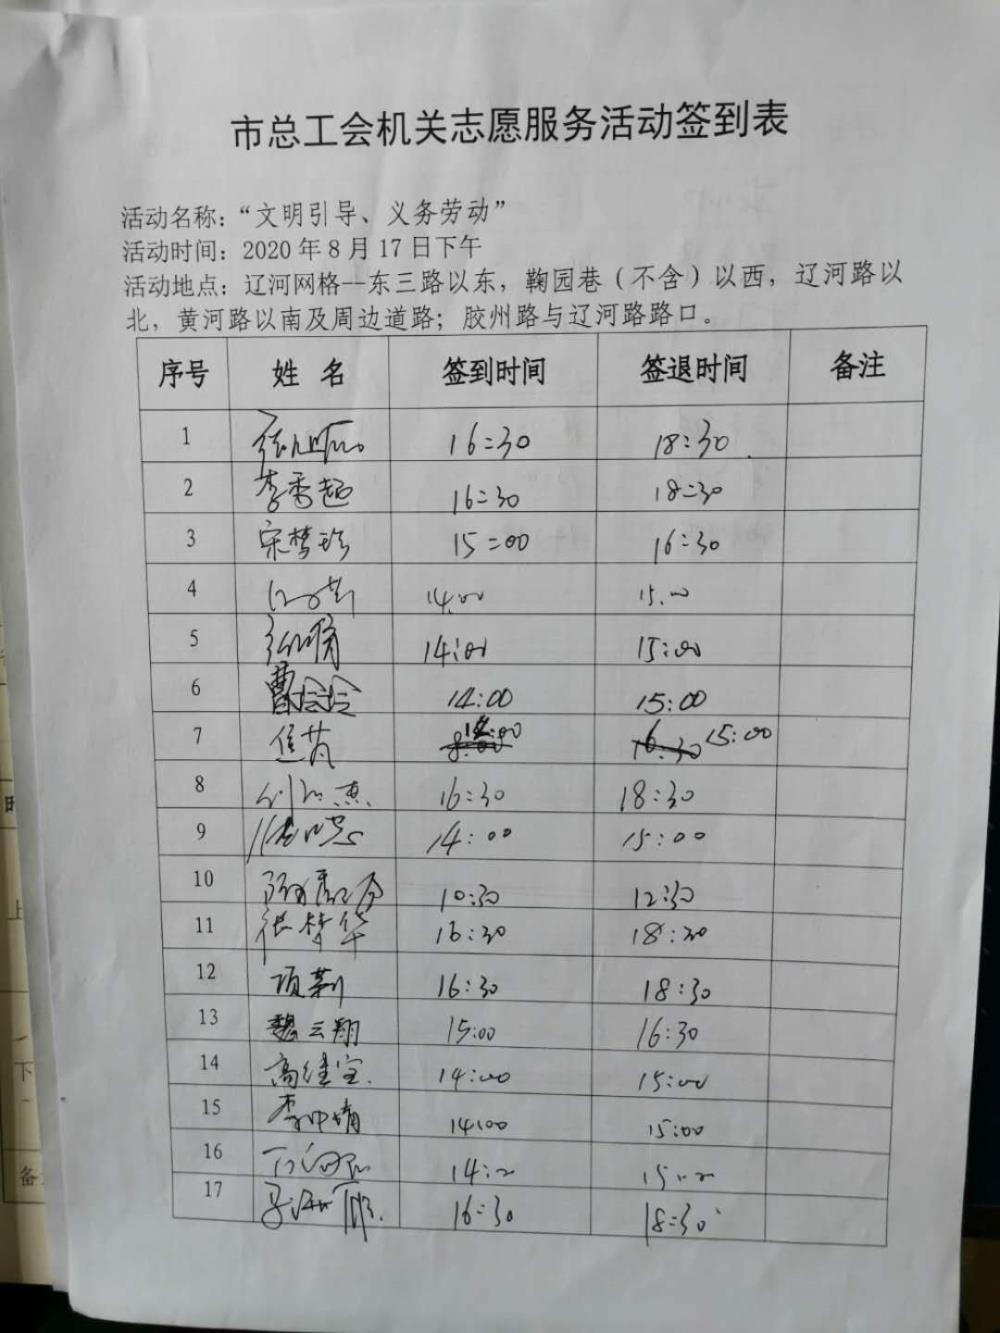 市总工会机关志愿服务活动签到表
活动名称：“文明引导、义务劳动”
活动时间：2020年8月17日下午
活动地点：辽河网格--东三路以东，鞠园巷（不含）以西，辽河路以
北，黄河路以南及周边道路；胶州路与辽河路路口。
序号 姓 名 签到时间 签退时间 备注
1 16:30 18:30
2 李秀超 16:30 18:30
3 宋梦珍 15:00 16:30
4 14:00 15:00
5 14:00 15:00
6 曹玲玲 14:00 15:00
7 焦芮 15:00
8 16:30 18:30
9 14:00 15:00
10 10:30 12:30
11 张梦华 16:30 18:30
12 项莉 16:30 18:30
13 魏云翔 15:00 16:30
14 高继宝 14:00 15:00
15 李中靖 14:00 15:00
16 14:00 15:00
17 16:30 18:30
上
下
备